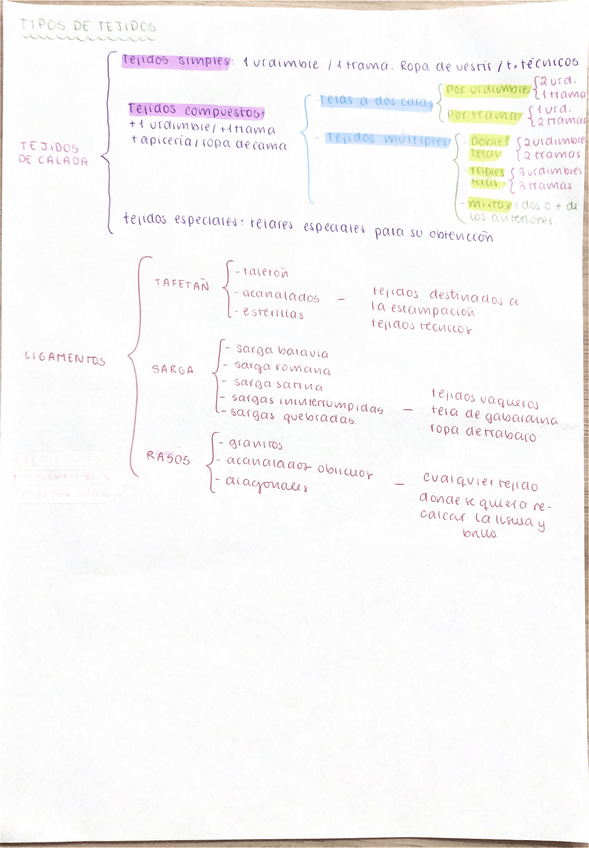 TIPOS DE TEJIDOS
TEJIDOS DE CALADA
Tejidos simples: 1 urdimbre / 1 trama. Ropa de vestir / t. técnicos
Tejidos compuestos:
+1 urdimbre / +1 trama
tapicería / ropa de cama
- Telas a dos caras
Por urdimbre
2 urd.
1 trama
Por trama
1 urd.
2 tramas
- Tejidos múltiples
- Dobles telas
2 urdimbres
2 tramas
- Triples telas
3 urdimbres
3 tramas
- mixtos: dos o + de
los anteriores
tejidos especiales: telares especiales para su obtención
LIGAMENTOS
TAFETÁN
- taletón
- acanalados
- esterillas
- tejidos destinados a
la estampación
tejidos técnicos
SARGA
- sarga batavia
- sarga romana
- sarga satina
- sargas ininterrumpidas
- sargas quebradas
- tejidos vaqueros
tela de gabardina
ropa de trabaro
RASOS
- granitos
- acanalados oblicuos
- diagonales
- cualquier tejido
donde se quiera re-
calcar la lisura y
brillo